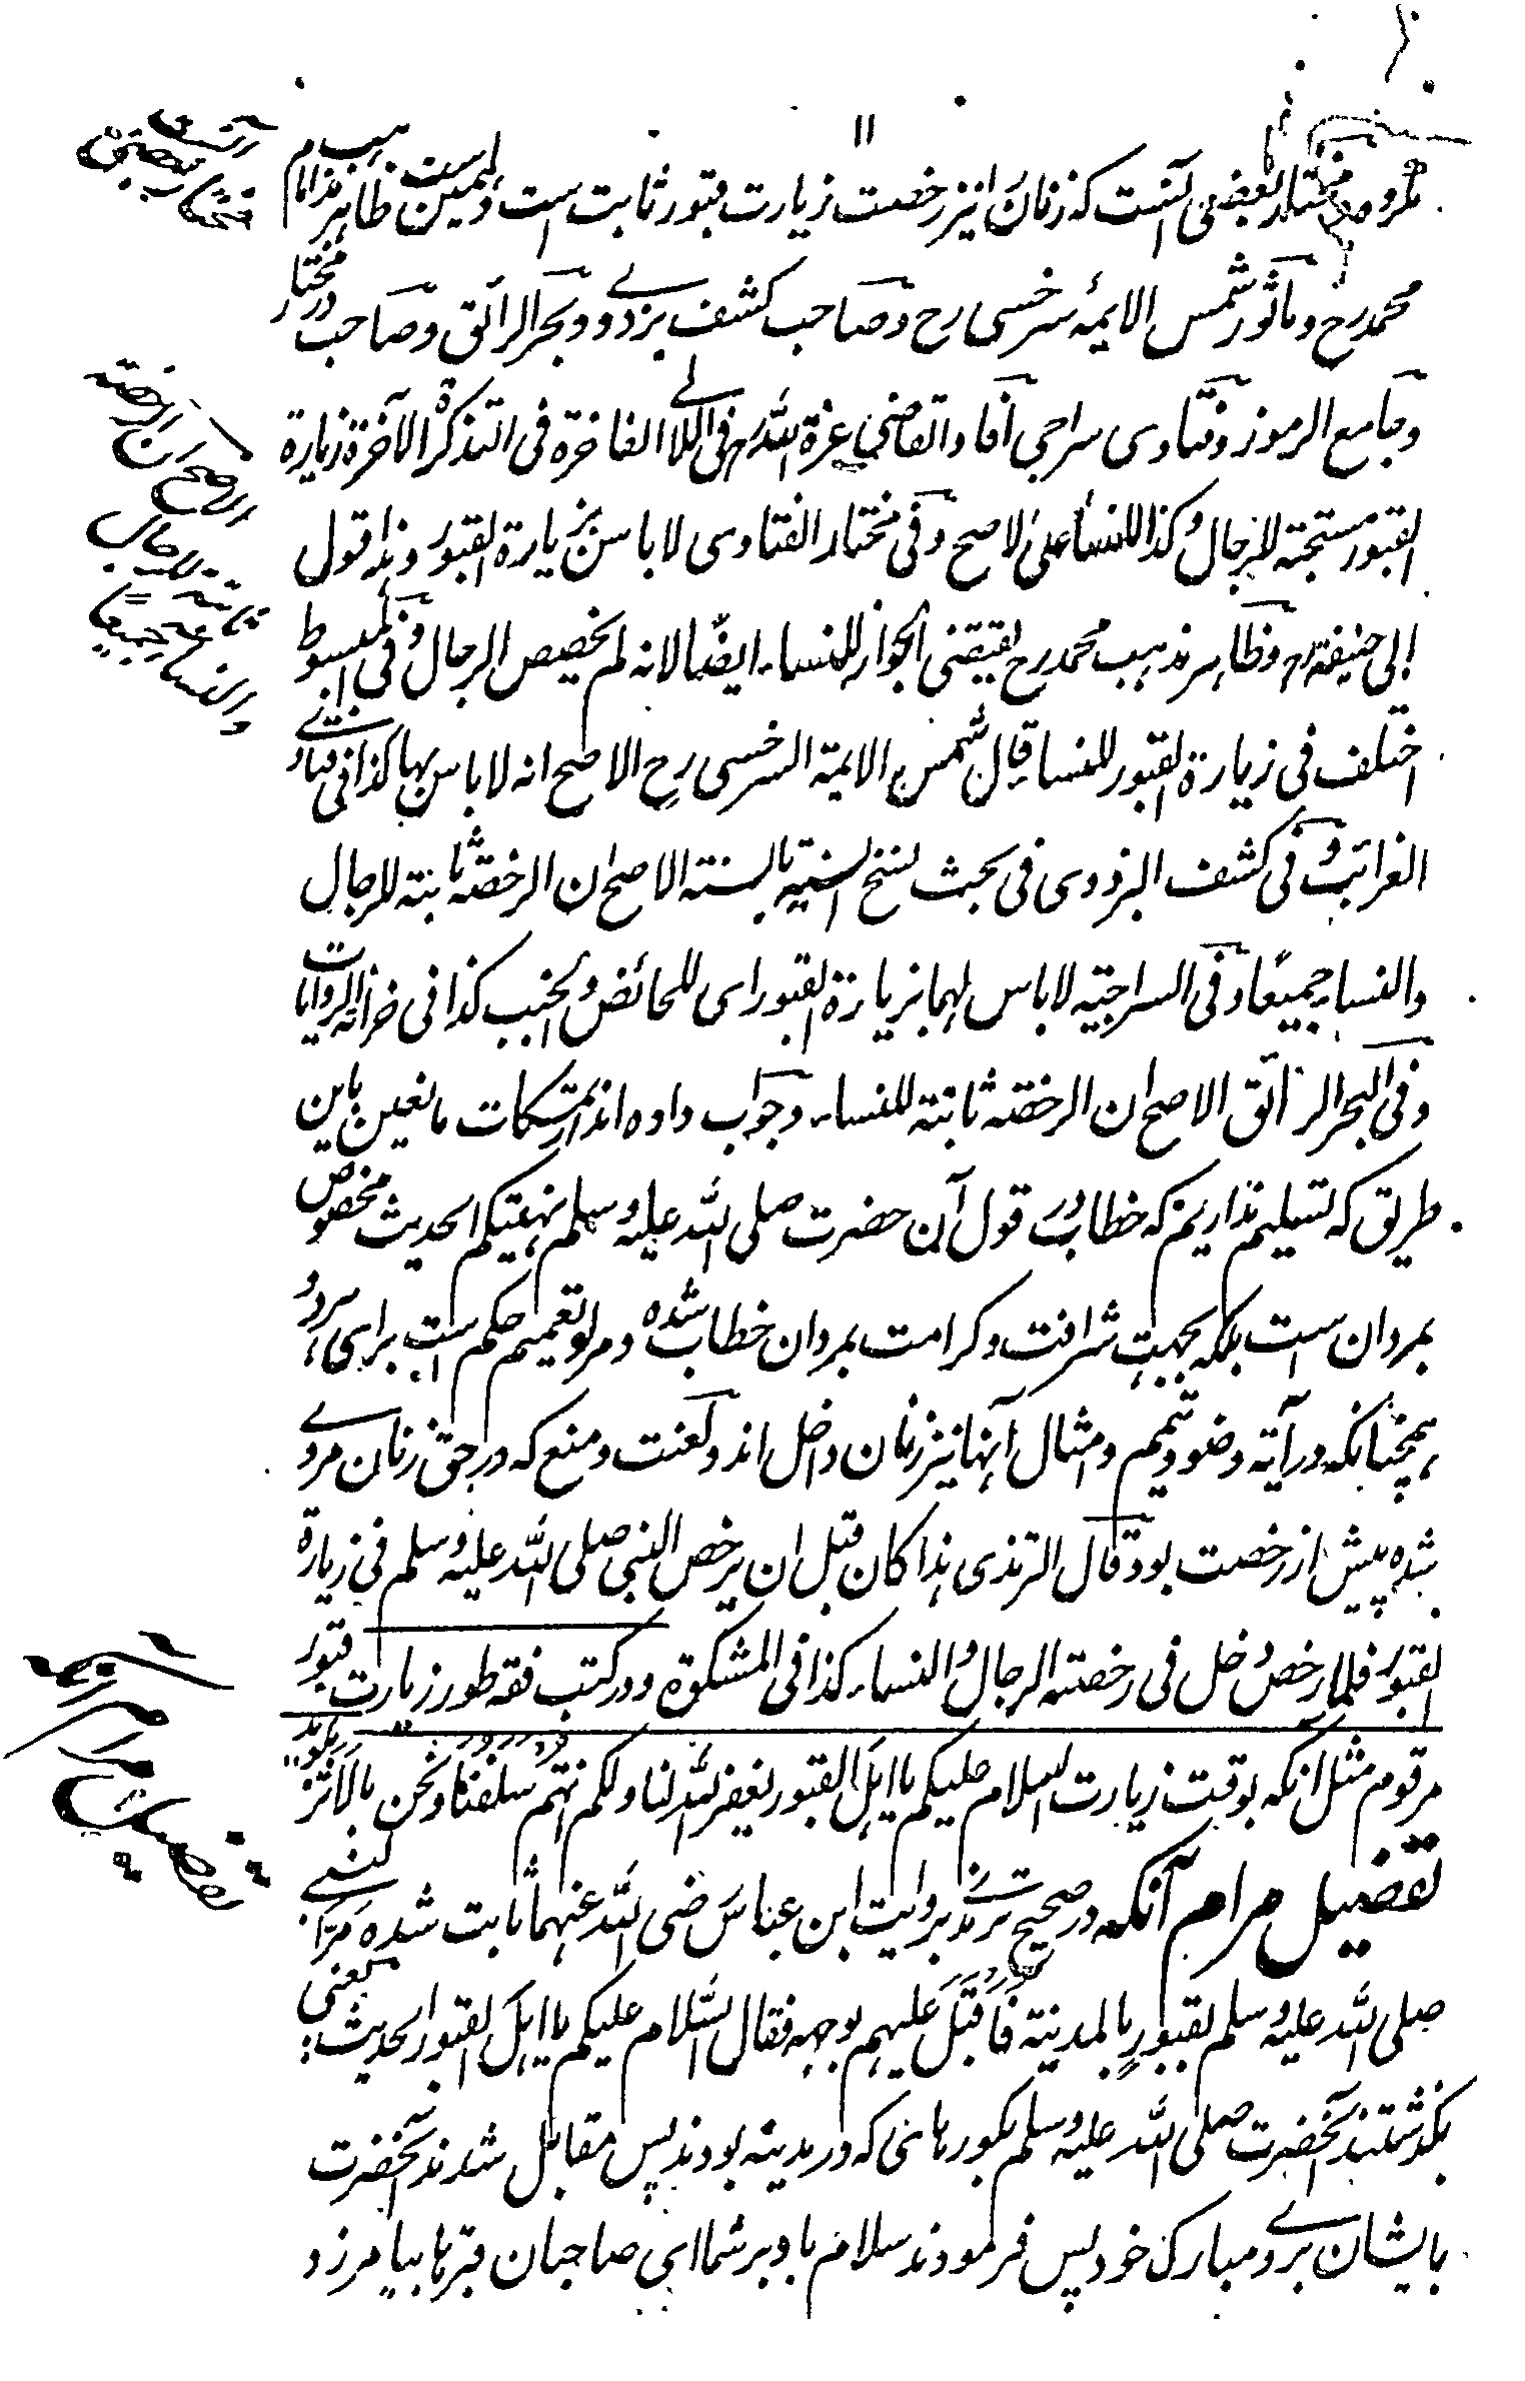 ۱۱
مکروه و مختار بعضی آنست که زنان را نیز رخصت زیارت قبور ثابت است و همین است ظاهر مذهب امام
محمد رح و ماثور شمس الایمه سرخسی رح و صاحب کشف بزدوی و بحر الرائق و صاحب در مختار
و جامع الرموز و فتاوی سراجی افاد القاضی عزة الله رح فی اللالی الفاخرة فی التذکرة الآخرة زیارة
القبور مستحبة للرجال و کذا للنساء علی الاصح و فی مختار الفتاوی لا باس بزیارة القبور و هذا قول
ابی حنیفة رح و ظاهر مذهب محمد رح یقتضی الجواز للنساء ایضًا لانه لم یخصص الرجال و فی المبسوط
اختلف فی زیارة القبور للنساء قال شمس الایمة السرخسی رح الاصح انه لا باس بها کذا فی فتاوی
الغرائب و فی کشف البزدوی فی بحث نسخ السنة بالسنة الاصح ان الرخصة ثابتة للرجال
والنساء جمیعًا و فی السراجیة لا باس لهما بزیارة القبور ای للحائض و الجنب کذا فی خزانة الروایات
و فی البحر الرائق الاصح ان الرخصة ثابتة للنساء و جواب داده اند از تمسکات مانعین باین
طریق که تسلیم نداریم که خطاب در قول آن حضرت صلی الله علیه وسلم نهیتکم الحدیث مخصوص
بمردان ست بلکه بجهت شرافت و کرامت بمردان خطاب شده و مراد تعمیم حکم است برای هر دو
همچنانکه در آیة وضو و تیمم و امثال آنها نیز زنان داخل اند و لعنت و منع که در حق زنان مروی
شده پیش از رخصت بود قال الترمذی هذا کان قبل ان یرخص النبی صلی الله علیه وسلم فی زیارة
القبور فلما رخص دخل فی رخصته الرجال و النساء کذا فی المشکوة و در کتب فقه طور زیارت قبور
مرقوم مثل انکه بوقت زیارت بگوید السلام علیکم یا اهل القبور یغفر الله لنا و لکم انتم سلفنا و نحن بالاثر
تفصیل مرام آنکه در صحیح ترمذی بروایت ابن عباس رضی الله عنهما ثابت شده مر النبی
صلی الله علیه وسلم بقبور بالمدینة فاقبل علیهم بوجهه فقال السلام علیکم یا اهل القبور الحدیث یعنی
بگذشتند آنحضرت صلی الله علیه وسلم بگورهائی که در مدینه بودند پس مقابل شدند آنحضرت
بایشان بروی مبارک خود پس فرمودند سلام باد بر شما ای صاحبان قبرها بیامرزد
مختار بعضی آنست
الاصح ان الرخصة
ثابتة للرجال
والنساء جمیعًا
تفصیل مرام آنکه